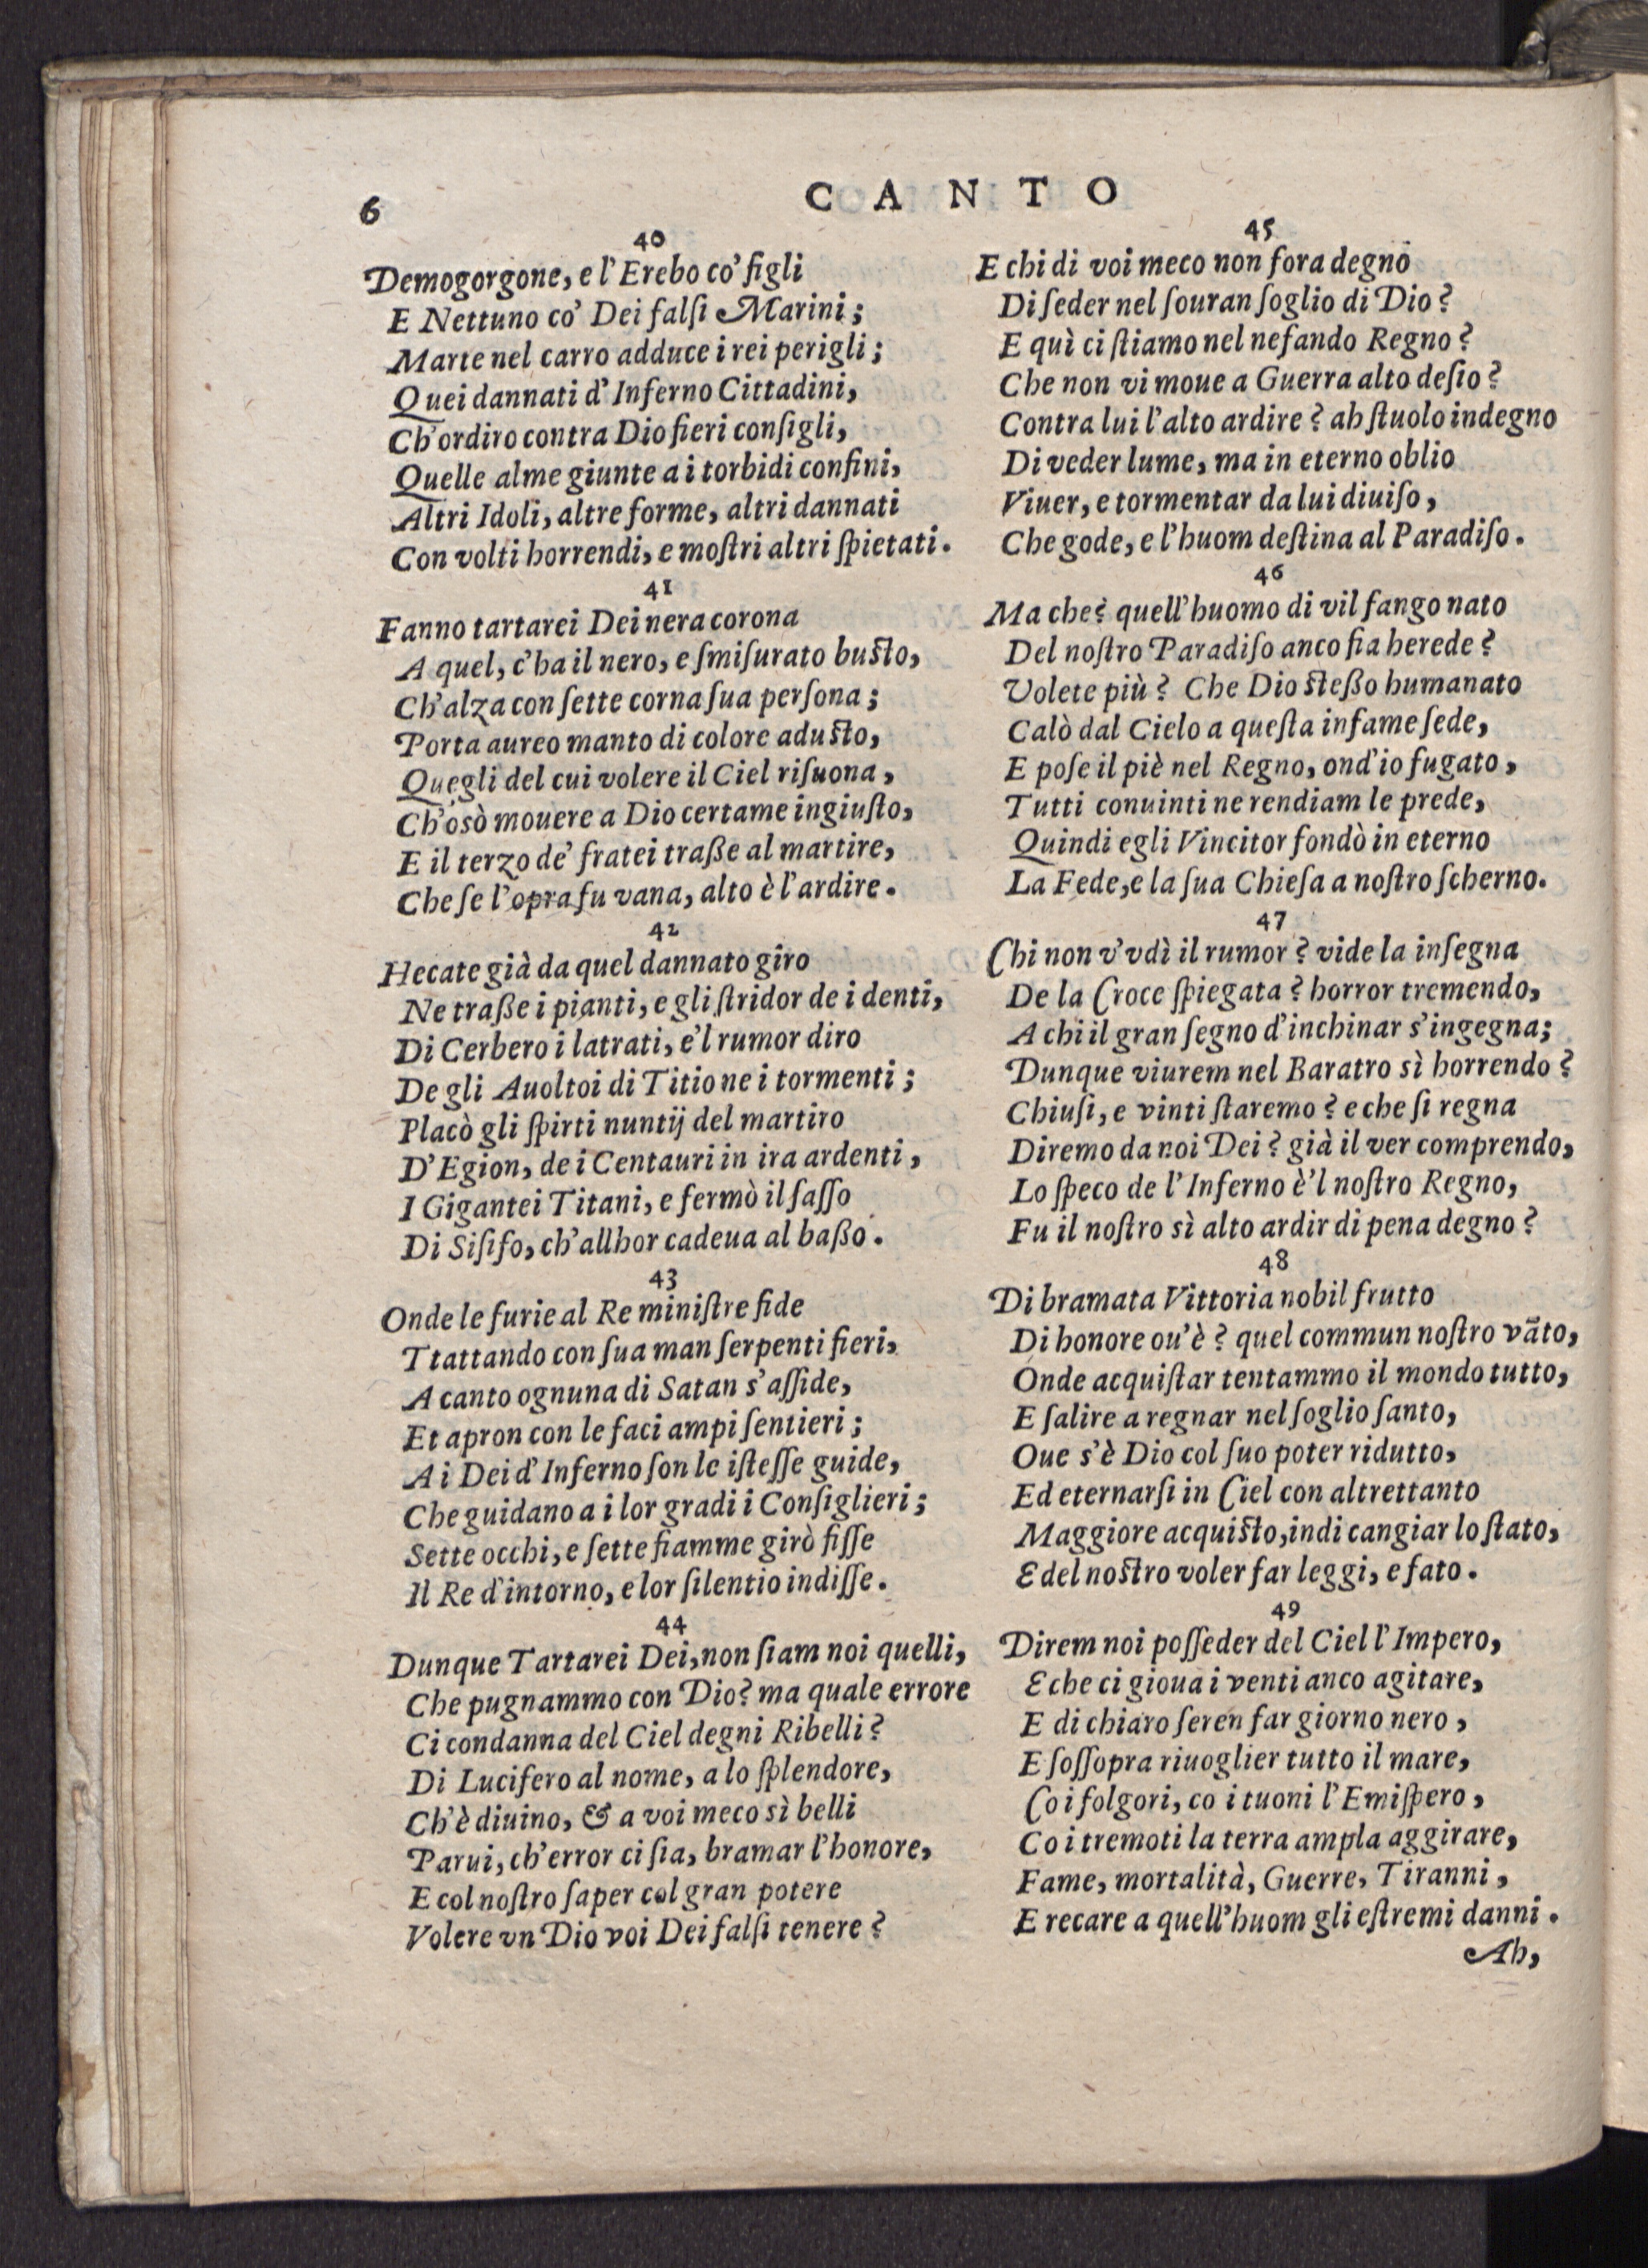 6
CANTO
40
Demogorgone, e l'Erebo co' figli
E Nettuno co' Dei falſi Marini;
Marte nel carro adduce i rei perigli;
Quei dannati d'Inferno Cittadini,
Ch'ordiro contra Dio fieri conſigli,
Quelle alme giunte a i torbidi confini,
Altri Idoli, altre forme, altri dannati
Con volti horrendi, e moſtri altri ſpietati.
41
Fanno tartarei Dei nera corona
A quel, c'ha il nero, e ſmiſurato buſto,
Ch'alza con ſette corna ſua perſona;
Porta aureo manto di colore aduſto,
Quegli del cui volere il Ciel riſuona,
Ch'osò mouere a Dio certame ingiuſto,
E il terzo de' fratei traße al martire,
Che ſe l'opra fu vana, alto è l'ardire.
42
Hecate già da quel dannato giro
Ne traße i pianti, e gli ſtridor de i denti,
Di Cerbero i latrati, e'l rumor diro
De gli Auoltoi di Titio ne i tormenti;
Placò gli ſpirti nuntij del martiro
D'Egion, de i Centauri in ira ardenti,
I Gigantei Titani, e fermò il ſaſſo
Di Siſifo, ch'allhor cadeua al baßo.
43
Onde le furie al Re miniſtre fide
Ttattando con ſua man ſerpenti fieri,
A canto ognuna di Satan s'aſſide,
Et apron con le faci ampi ſentieri;
A i Dei d'Inferno ſon le iſteſſe guide,
Che guidano a i lor gradi i Conſiglieri;
Sette occhi, e ſette fiamme girò fiſſe
Il Re d'intorno, e lor ſilentio indiſſe.
44
Dunque Tartarei Dei, non ſiam noi quelli,
Che pugnammo con Dio? ma quale errore
Ci condanna del Ciel degni Ribelli?
Di Lucifero al nome, a lo ſplendore,
Ch'è diuino, & a voi meco sì belli
Parui, ch'error ci ſia, bramar l'honore,
E col noſtro ſaper col gran potere
Volere vn Dio voi Dei falſi tenere?
45
E chi di voi meco non fora degno
Di ſeder nel ſouran ſoglio di Dio?
E quì ci ſtiamo nel nefando Regno?
Che non vi moue a Guerra alto deſio?
Contra lui l'alto ardire? ah ſtuolo indegno
Di veder lume, ma in eterno oblio
Viuer, e tormentar da lui diuiſo,
Che gode, e l'huom deſtina al Paradiſo.
46
Ma che? quell'huomo di vil fango nato
Del noſtro Paradiſo anco fia herede?
Volete più? Che Dio ſteßo humanato
Calò dal Cielo a queſta infame ſede,
E poſe il piè nel Regno, ond'io fugato,
Tutti conuinti ne rendiam le prede,
Quindi egli Vincitor fondò in eterno
La Fede, e la ſua Chieſa a noſtro ſcherno.
47
Chi non v'vdì il rumor? vide la inſegna
De la Croce ſpiegata? horror tremendo,
A chi il gran ſegno d'inchinar s'ingegna;
Dunque viurem nel Baratro sì horrendo?
Chiuſi, e vinti ſtaremo? e che ſi regna
Diremo da noi Dei? già il ver comprendo,
Lo ſpeco de l'Inferno è'l noſtro Regno,
Fu il noſtro sì alto ardir di pena degno?
48
Di bramata Vittoria nobil frutto
Di honore ou'è? quel commun noſtro vãto,
Onde acquiſtar tentammo il mondo tutto,
E ſalire a regnar nel ſoglio ſanto,
Oue s'è Dio col ſuo poter ridutto,
Ed eternarſi in Ciel con altrettanto
Maggiore acquiſto, indi cangiar lo ſtato,
E del noſtro voler far leggi, e fato.
49
Direm noi poſſeder del Ciel l'Impero,
E che ci gioua i venti anco agitare,
E di chiaro ſeren far giorno nero,
E ſoſſopra riuoglier tutto il mare,
Co i folgori, co i tuoni l'Emiſpero,
Co i tremoti la terra ampla aggirare,
Fame, mortalità, Guerre, Tiranni,
E recare a quell'huom gli eſtremi danni.
Ah,